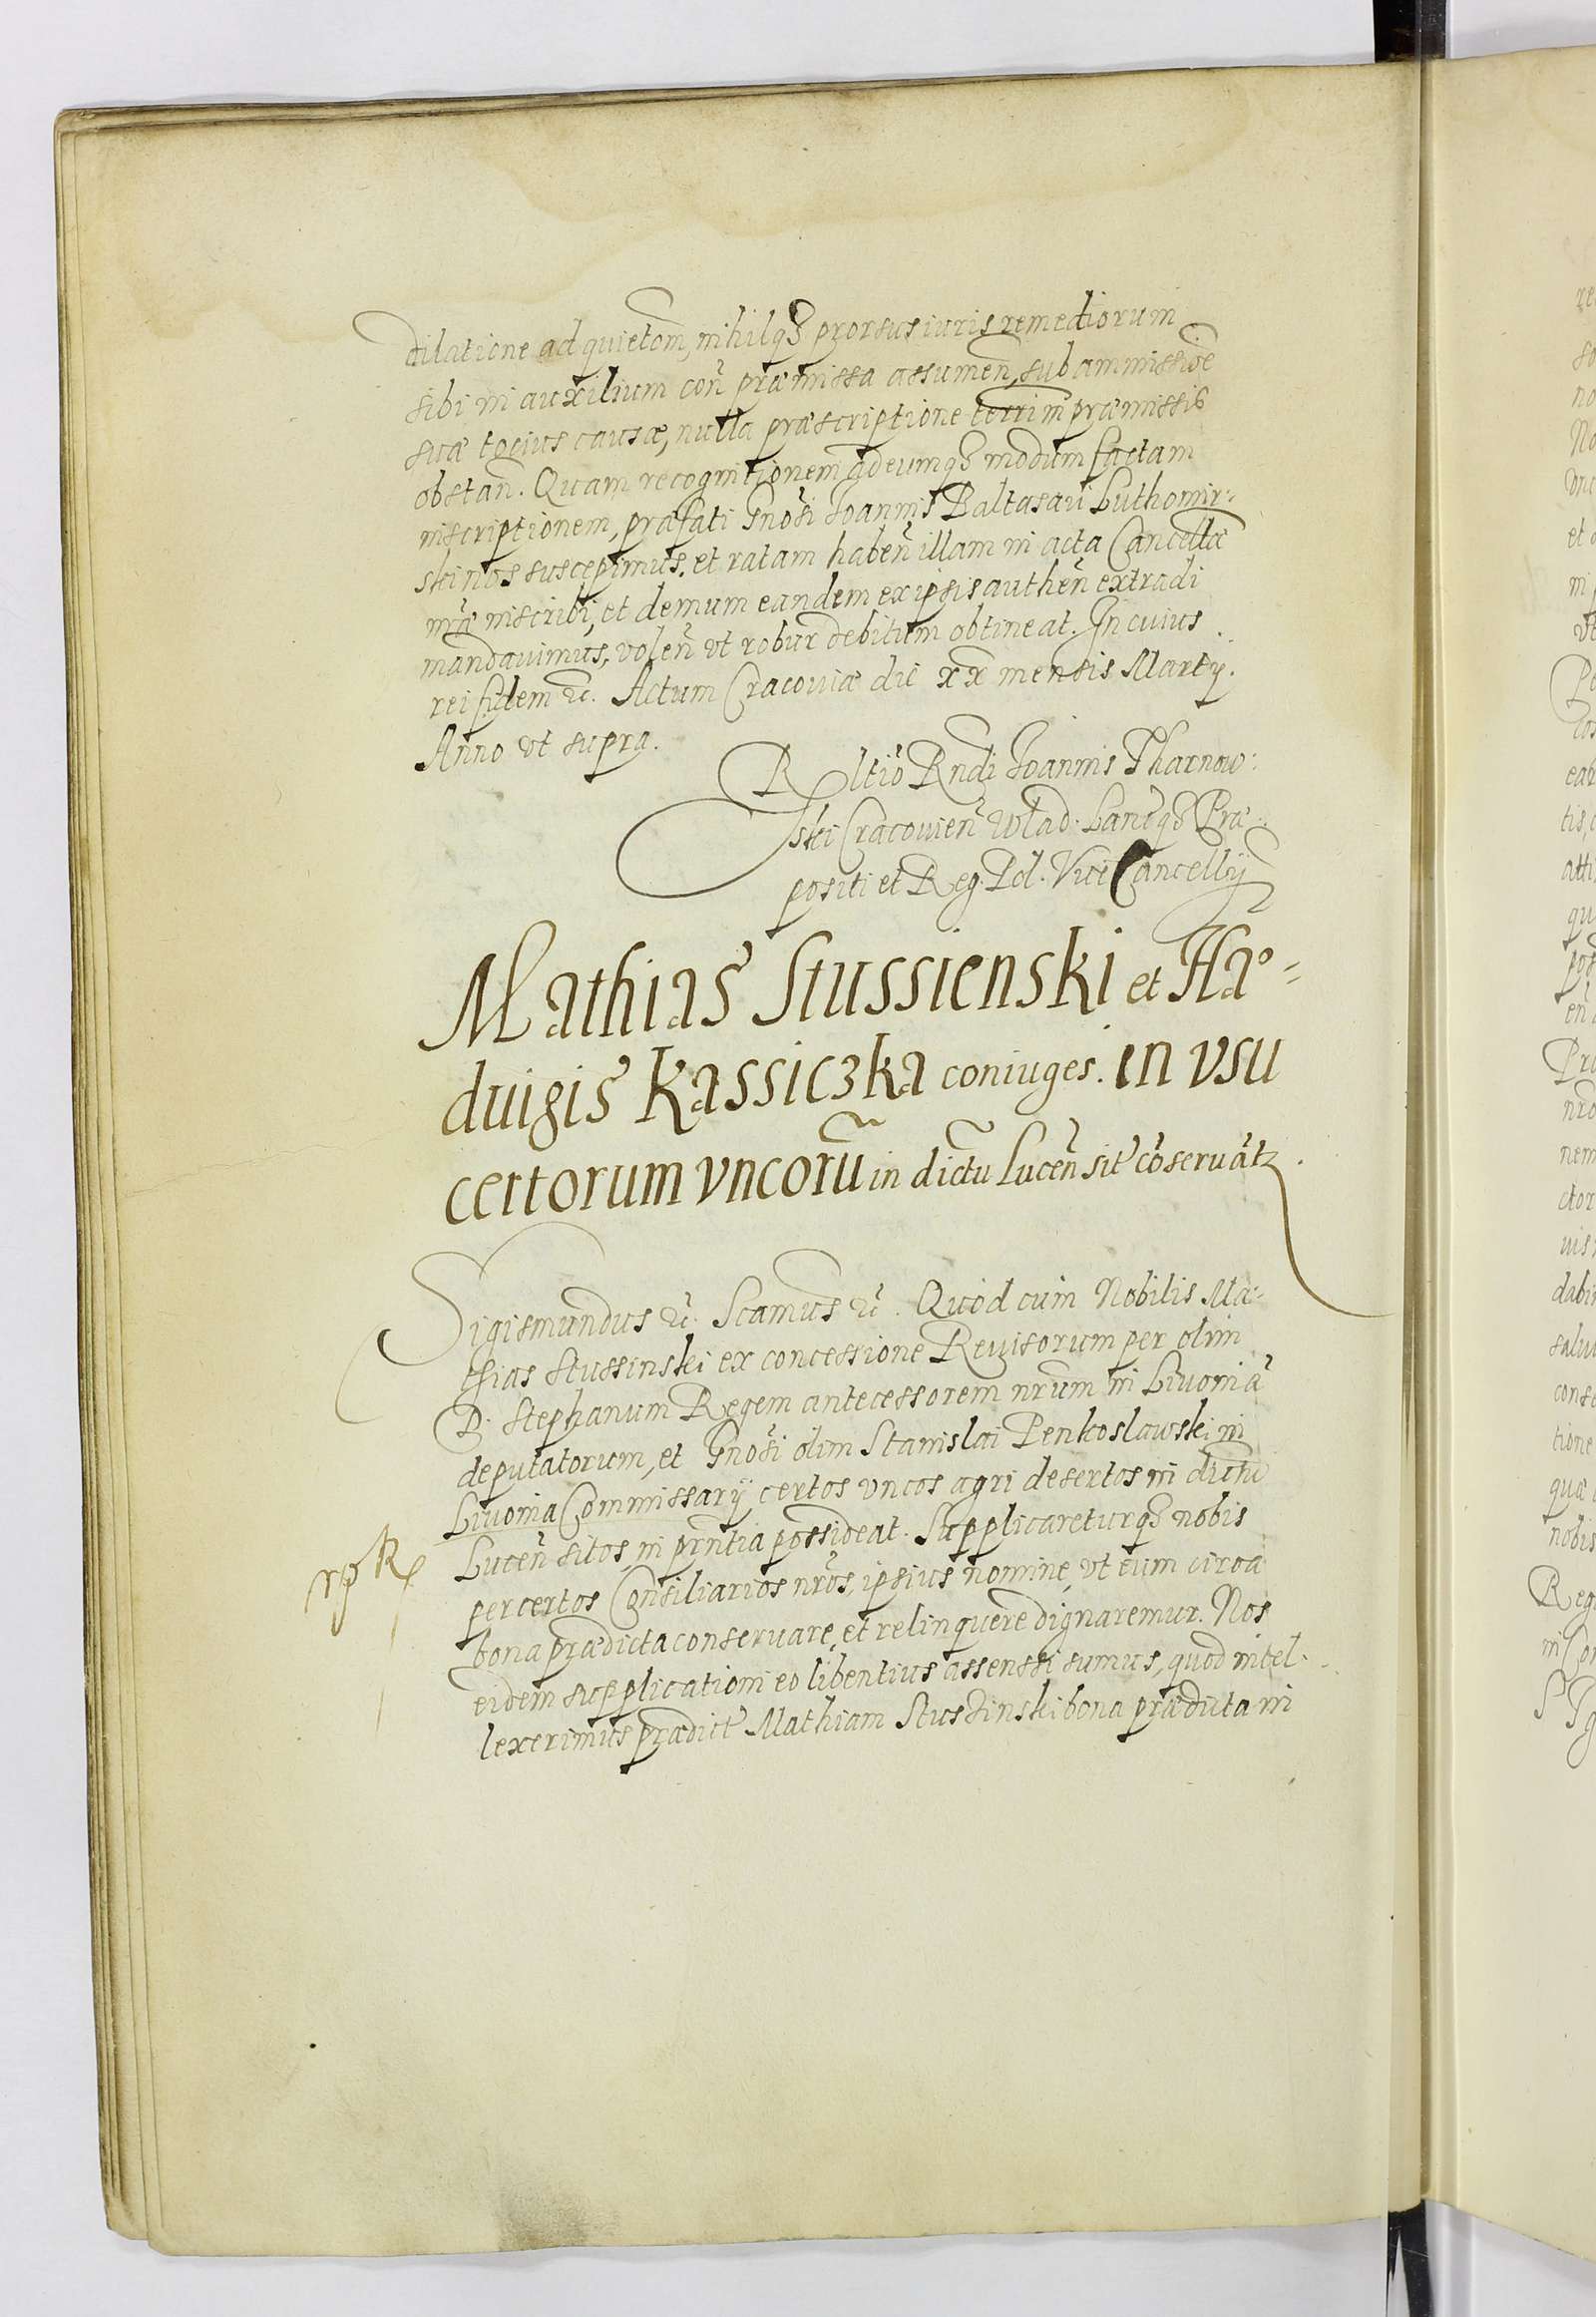 dilatione ad quietõm, nihilq3 prorsus iuris remediorum
sibi in auxilium coñ præmissa assumeñ, sub ammissiõe
suæ tocius causæ, nulla præscriptione terrim præmissis
obstañ. Quam recognitionem ad eumq3 modum factam
inscriptionem, præfati Gnõsi Joannis Baltasari Luthomir-
ski nos suscepimus. et ratam habeñ illam in acta Cancellæ
nr̃æ inscribi, et demum eandem ex ipsis autheñ extradi
mandavimus, voleñ vt robur debitum obtineat. In cuius
rei fidem &c. Actum Cracouiæ die xx mensis Martÿ.
Anno vt supra.
Rltiõ Rndi Joannis Tharnow:
ski Cracouieñ Wlad: Lancq3 Præ-
positi et Reg. Pol. Vice Cancellÿ
Mathias Stussienski et Ha-
duigis Kassiczka coniuges. in vsu
certorum vncorũ in dictu Luceñ sit cõseruãt
Sigismundus &c. Scamus &c. Quod cum Nobilis Ma-
thias Stussinski ex concessione Reuisorum per olim
D. Stephanum Regem antecessorem nrũm in Liuoniã
deputatorum, et Gnõsi olim Stanislai Penkoslawski in
Liuonia Commissarÿ certos vncos agri desertos in dictu
Luceñ sitos, in prñtia possideat. Supplicareturq3 nobis
per certos Consiliarios nrõs, ipsius nomine, vt eum circa
bona prædicta conseruare, et relinquere dignaremur. Nos
eidem supplicationi eo libentius assensi sumus, quod intel-
lexerimus prædict Mathiam Stussinski bona prædicta in